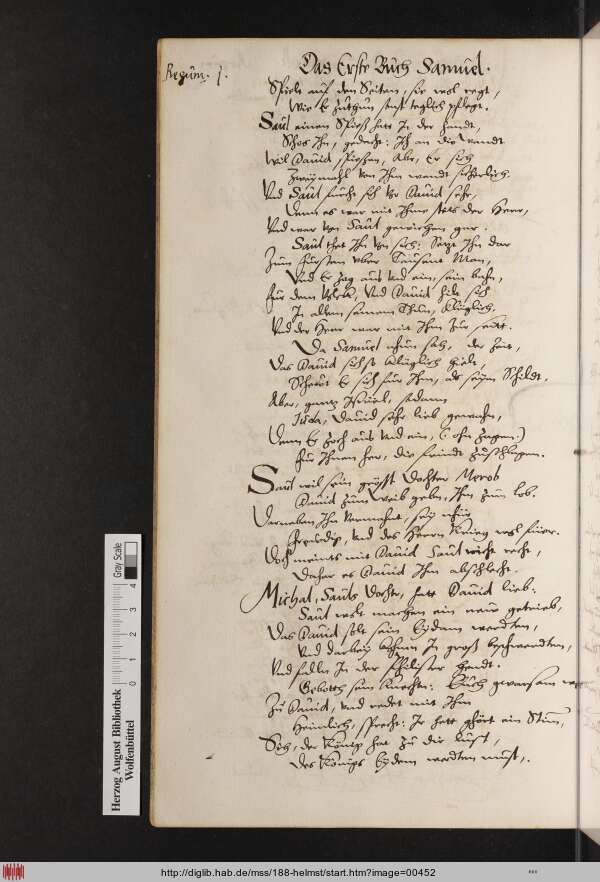 Regum. 1.
Das Erste Buch Samuel.
Spiele auf den Seiten, sie wol regt,
Wie Er zuthun sonst teglich pflegt.
Saul einen Spieß hatt In der handt,
Schos Ihn, gedacht: Ich an die wandt
Wil Dauid spießen, Aber, Er sich
Zweymahl von Ihm wandt sicherlich.
Vnd Saul fürcht sich vor Dauid sehr,
Denn es war mit Ihme stets der Herr,
Vnd war von Saul gewichen gar.
Saul thet Ihn von sich: Setzt Ihn dar
Zum fürsten vber Tausent Man,
Vnd Er zog aus vnd ein, sein bahn,
für dem Volck, Vnd Dauid hilt sich
In allem seinem Thun, klüglich,
Vnd der Herr war mit Ihm zur
Da Samuel sah, der Zeit,
Das Dauid sich so klüglich hielt,
Scheut Er sich für Ihm, als seym Schildt.
Aber, gantz Israel,
Juda, Dauid sehr lieb gewahn,
Denn Er Zoch aus vnd ein, (ohn Zagen:)
für Ihnen her, die feinde Zuschlagen.
Saul wil sein gröst Dochter Merob
Dauid Zum Weib gebn, Ihm zum lob.
Darneben Ihn vermahnt, sey
frewdig, vnd des Herrn Krieg wol führ.
Doch meints mit Dauid Saul nicht recht,
Daher es Dauid Ihm abschlecht.
Michal, Sauls Dochter, hatt Dauid lieb:
Saul wolt machen ein new getrieb,
Das Dauid solt sein Eydam werdten,
Vnd darbey In groß beschwerdten,
Vnd falln In der Philister hendt.
Gebotth sein Knechten: Euch gewarsam
Zu Dauid, vnd redet mit Ihm
Heimlich, sprecht: Ir hett ghört ein Stim,
Sich, der König hat Zu dir lust,
Des Königs Eydem werdten must.
Herzog August Bibliothek
Wolfenbüttel
Gray Scale
0 1 2 3 4
http://diglib.hab.de/mss/188-helmst/start.htm?image=00452